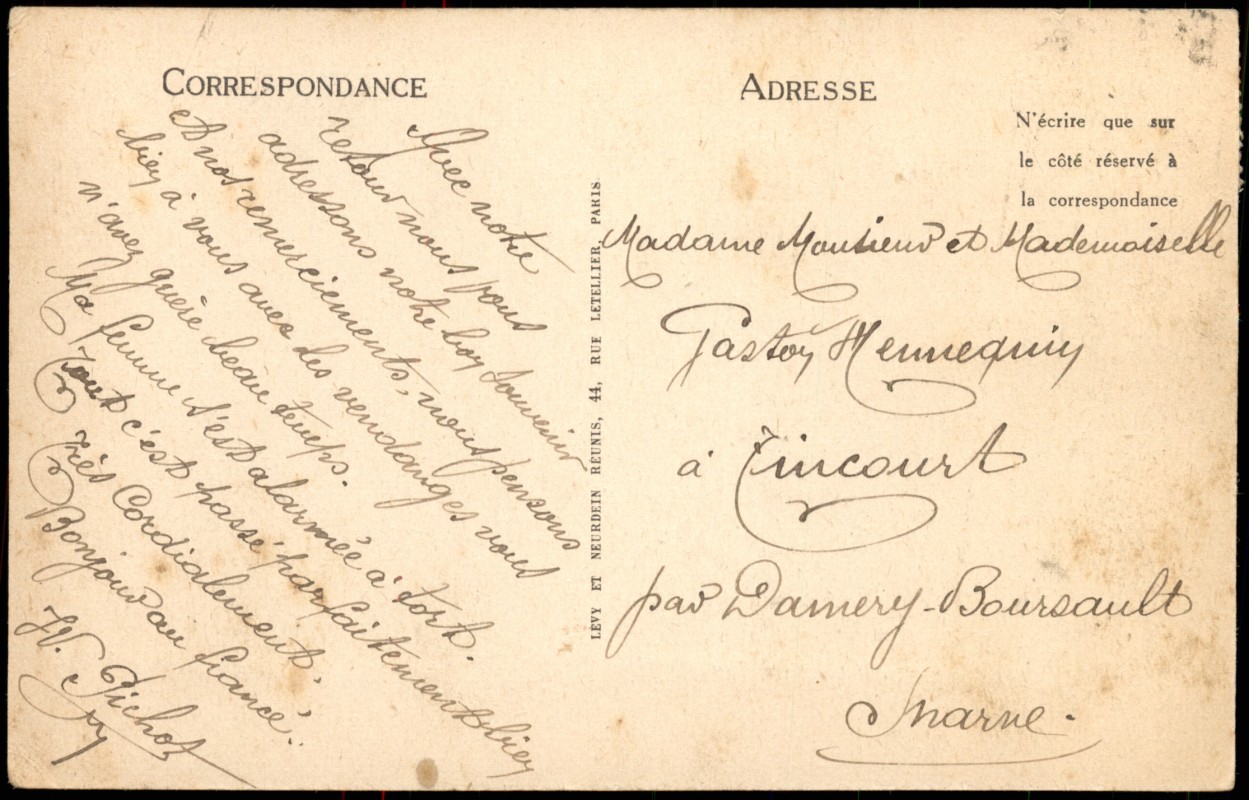 CORRESPONDANCE
Avec notre
retour nous vous
adressons notre bon souvenir
et nos remerciements, nous pensons
bien à vous avec les vendanges vous
n'avez guère beau temps.
Ma femme s'est alarmée à tort.
Tout c'est passé parfaitement bien
Très Cordialement,
Bonjour au fiancé.
Pichot
LÉVY ET NEURDEIN RÉUNIS, 44, RUE LETELLIER, PARIS
ADRESSE
N'écrire que sur
le côté réservé à
la correspondance
Madame Monsieur et Mademoiselle
Gaston Hennequin
à Tincourt
par Damery-Boursault
Marne.